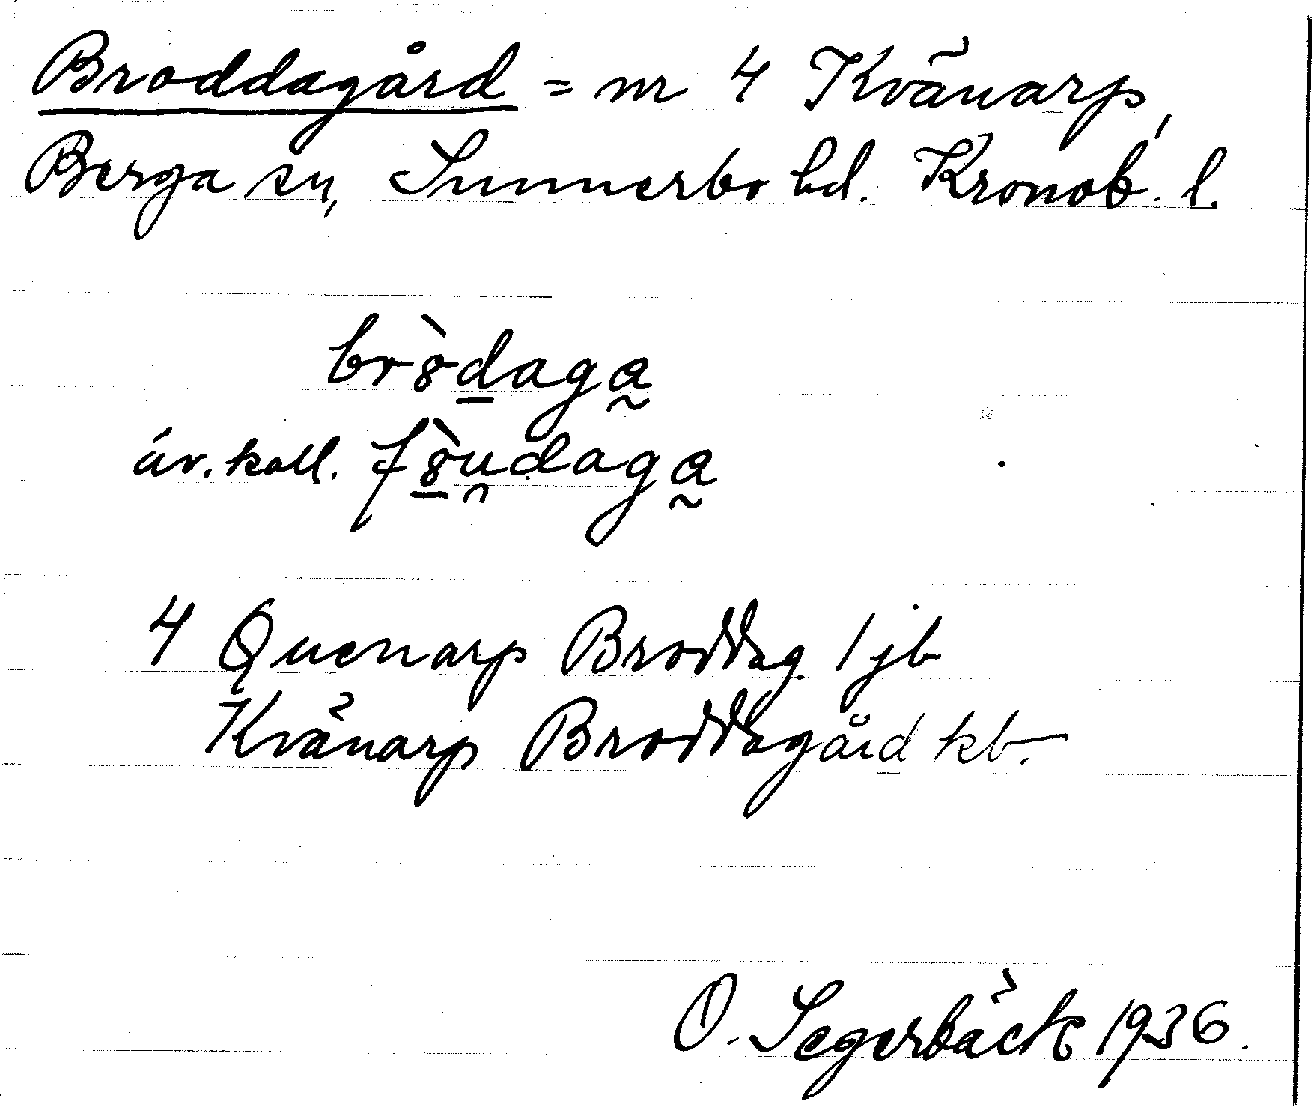 Broddagård = nr 4 Kvänarp,
Berga sn, Sunnerbo hd. Kronob. l.
bròdaga
äv. koll. fòndaga
4 Quenarp Broddag 1 jb
Kvänarp Broddagård kb.
O. Segerbäck 1936.